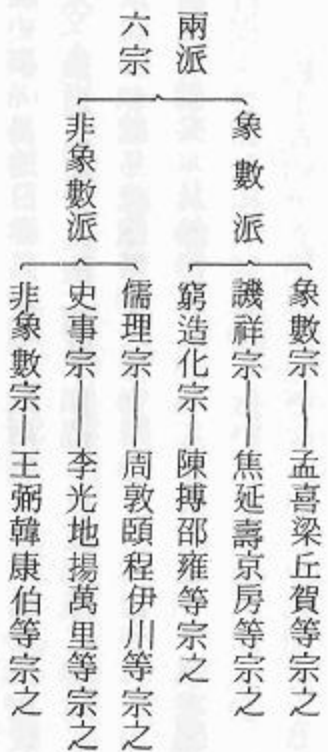 兩派
六宗
象數派
非象數派
象數宗—孟喜梁丘賀等宗之
譏祥宗—焦延壽京房等宗之
窮造化宗—陳摶邵雍等宗之
儒理宗—周敦頤程伊川等宗之
史事宗—李光地揚萬里等宗之
非象數宗—王弼韓康伯等宗之